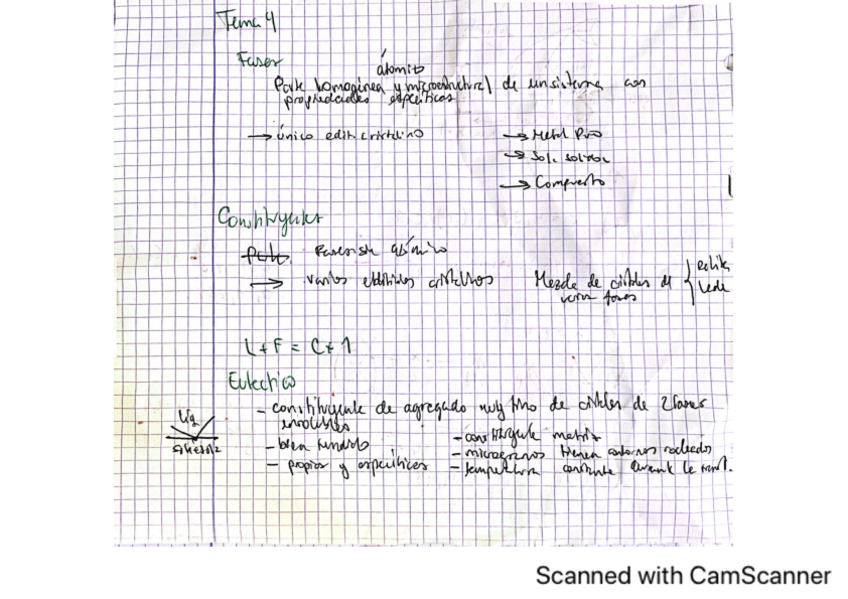 Tema 4
Fases
átomito
Parte homogénea y microestructural de un sistema con
propiedades específicas
→ único edif. cristalino
→ Metal Puro
→ Sol. sólida
→ Compuesto
Constituyentes
→ varios edificios cristalinos
Mezcla de cristales de
varias fases
L + F = C + 1
Eutéctico
- constituyente de agregado muy fino de cristales de 2 fases
insolubles
Liq
- bien fundido
- propios y específicos
- constituyente matriz
- microgranos tienen contornos redondos
- temperatura constante durante la transf.
Scanned with CamScanner